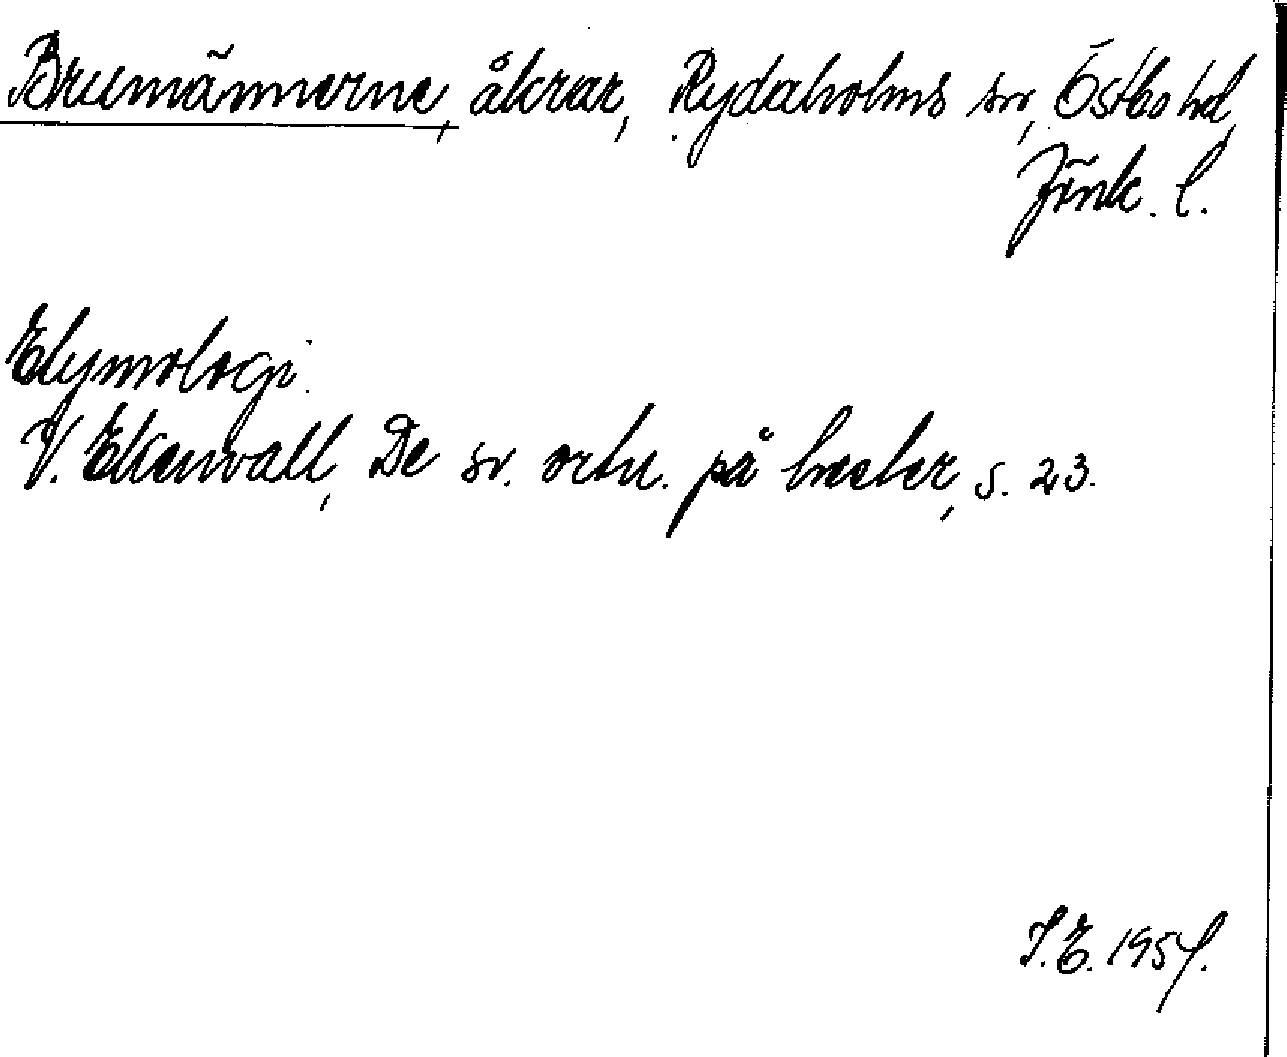 Brumännerne, åkrar, Rydaholms sn, Östbo hd,
Jönk. l.
Etymologi.
V. Ekenvall, De sv. ortn. på hester, s. 23.
I.E. 1957.